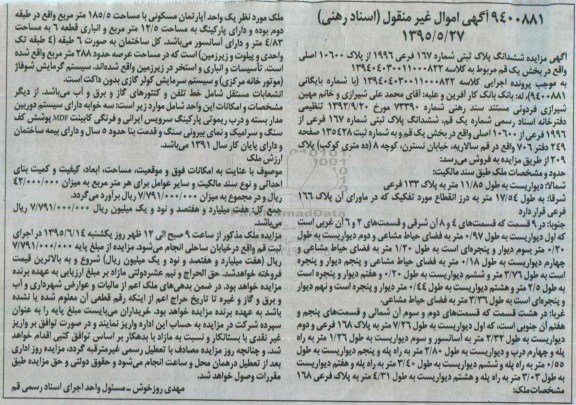 ۹۴۰۰۸۸۱ آگهی اموال غیر منقول (اسناد رهنی)
۱۳۹۵/۵/۲۷
آگهی مزایده ششدانگ پلاک ثبتی شماره ۱۶۷ فرعی ۱۹۹۶ از پلاک ۱۰۶۰۰ اصلی
واقع در بخش یک قم مربوط به کلاسه
به موجب پرونده اجرایی کلاسه (با شماره بایگانی
۹۴۰۰۸۸۱)، له: بانک کار آفرین و علیه: آقای محمد علی شیرازی و خانم مهین
شیرازی فردوئی مستند سند رهنی شماره ۷۳۳۹۰ مورخ ۱۳۹۲/۹/۲۰ تنظیمی
دفترخانه اسناد رسمی شماره یک قم، ششدانگ پلاک ثبتی شماره ۱۶۷ فرعی از
۱۹۹۶ فرعی از ۱۰۶۰۰ اصلی واقع در بخش یک قم و به شماره ثبت ۱۳۵۴۲۸ صفحه
۲۴۹ دفتر ۷۰۶ واقع در قم سالاریه، خیابان نسترن، کوچه ۸ (ده متری کوکب) پلاک
۲۰۹ از طریق مزایده به فروش می‌رسد:
حدود و مشخصات ملک طبق سند مالکیت:
شمالا: دیواریست به طول ۱۱/۸۵ متر به پلاک ۱۳۳ فرعی
شرقا: به طول ۱۷/۵۴ متر به درز انقطاع مورد تفکیک که در ماورای آن پلاک ۱۶۶
فرعی قرار دارد
جنوبا: در ۹ قسمت که قسمت‌های ۴ و ۸ آن شرقی و قسمت‌های ۳ و ۶ آن غربی است
که اول دیواریست به طول ۰/۹۷ متر به فضای حیاط مشاعی و دوم دیواریست به طول
متر و سوم دیوار و پنجره‌ای است به طول ۱/۲۰ متر به فضای حیاط مشاعی و
چهارم دیواریست به طول ۰/۱۸ متر به فضای حیاط مشاعی و پنجم دیوار و پنجره
است به طول ۳/۷۶ متر و ششم دیواریست به طول ۰/۲۰ و هفتم دیوار و پنجره است
به طول ۲/۵ متر و هشتم دیواریست به طول ۰/۴۴ متر دیوار و پنجره است و نهم دیوار
و پنجره‌ای است به طول ۳/۳۶ متر به فضای حیاط مشاعی.
غربا: در هشت قسمت که قسمت‌های دوم و سوم آن شمالی و قسمت‌های پنجم و
هفتم آن جنوبی است، که اول دیواریست به طول ۷/۲۶ متر به پلاک ۱۶۸ فرعی و دوم
دیواریست به طول ۲/۳۲ متر به آسانسور و سوم دیواریست به طول ۱/۲۶ متر به راه
پله و چهارم درب و دیواریست به طول ۲/۸۰ متر به راه پله و پنجم دیواریست به طول
۰/۵۵ متر به راه پله و ششم دیواریست به طول ۳/۴۰ متر به راه پله و هفتم دیواریست
به طول ۳/۰۳ متر به راه پله و هشتم دیواریست به طول ۴/۳۱ متر به پلاک فرعی ۱۶۸
مشخصات ملک:
ملک مورد نظر یک واحد آپارتمان مسکونی با مساحت ۱۸۵/۵ متر مربع واقع در طبقه
دوم بوده و دارای پارکینگ به مساحت ۱۲/۵ متر مربع و انباری قطعه ۶ به مساحت
۴/۸۳ متر و دارای آسانسور می‌باشد. کل ساختمان به صورت ۶ طبقه (۴ طبقه تک
واحدی و پیلوت و زیرزمین) است که در مساحت عرصه حدود ۲۸۸ متر مربع واقع شده
است. تأسیسات و انباری و استخر در زیرزمین واقع شده‌اند. سیستم گرمایش شوفاژ
(موتور خانه مرکزی) و سیستم سرمایش کولر گازی بدون داکت است.
انشعابات مستقل شامل خط تلفن و کنتورهای گاز و برق و آب می‌باشد. از دیگر
مشخصات و امکانات این واحد شامل موارد زیر است: سه خوابه دارای سیستم دوربین
مدار بسته و درب ریموتی پارکینگ سرویس ایرانی و فرنگی کابینت MDF پوشش کف
سنگ و سرامیک و نمای بیرونی سنگ و قدمت بنا حدود ۵ سال و دارای بیمه ساختمان
و دارای پایان کار سال ۱۳۹۱ می‌باشد.
ارزش ملک
موصوف با عنایت به امکانات فوق و موقعیت، مساحت، ابعاد، کیفیت و کمیت بنای
احداثی و نوع سند مالکیت و سایر عوامل برای هر متر مربع به میزان ۴۲/۰۰۰/۰۰۰
ریال و در مجموع به میزان ۷/۷۹۱/۰۰۰/۰۰۰ ریال برآورد می‌گردد.
جمع کل: هفت میلیارد و هفتصد و نود و یک میلیون ریال ۷/۷۹۱/۰۰۰/۰۰۰ ریال
می‌باشد.
مزایده ملک مذکور از ساعت ۹ صبح الی ۱۲ ظهر روز یکشنبه ۱۳۹۵/۶/۱۴ در اداره
ثبت قم واقع در خیابان ساحلی انجام می‌شود. مزایده از مبلغ پایه ۷/۷۹۱/۰۰۰/۰۰۰
ریال (هفت میلیارد و هفتصد و نود و یک میلیون ریال) شروع و به بالاترین قیمت
فروخته خواهد شد. حق الحراج و نیم عشر دولتی مازاد بر مبلغ ارزیابی به عهده برنده
مزایده خواهد بود. در ضمن بدهی‌های ملک اعم از مالیات و عوارض شهرداری و آب
و برق و گاز و غیره تا تاریخ حراج اعم از اینکه رقم قطعی آن معلوم شده یا نشده
باشد به عهده برنده مزایده خواهد بود. خریداران می‌بایست مبلغ پایه را به عنوان
سپرده شرکت در مزایده به حساب این اداره واریز نمایند و در صورت توافق بر واریز
غیر نقدی با بستانکار و نسبت به مازاد با بدهکار بر اساس توافق کتبی اقدام خواهد
شد. و چنانچه روز مزایده مصادف با تعطیل رسمی غیرمترقبه گردد، مزایده روز اداری
بعد از تعطیلی در همان محل و ساعت انجام می‌شود و حقوق دولتی و حق مزایده طبق
مقررات وصول خواهد شد.
مهدی روزخوش - مسئول واحد اجرای اسناد رسمی قم